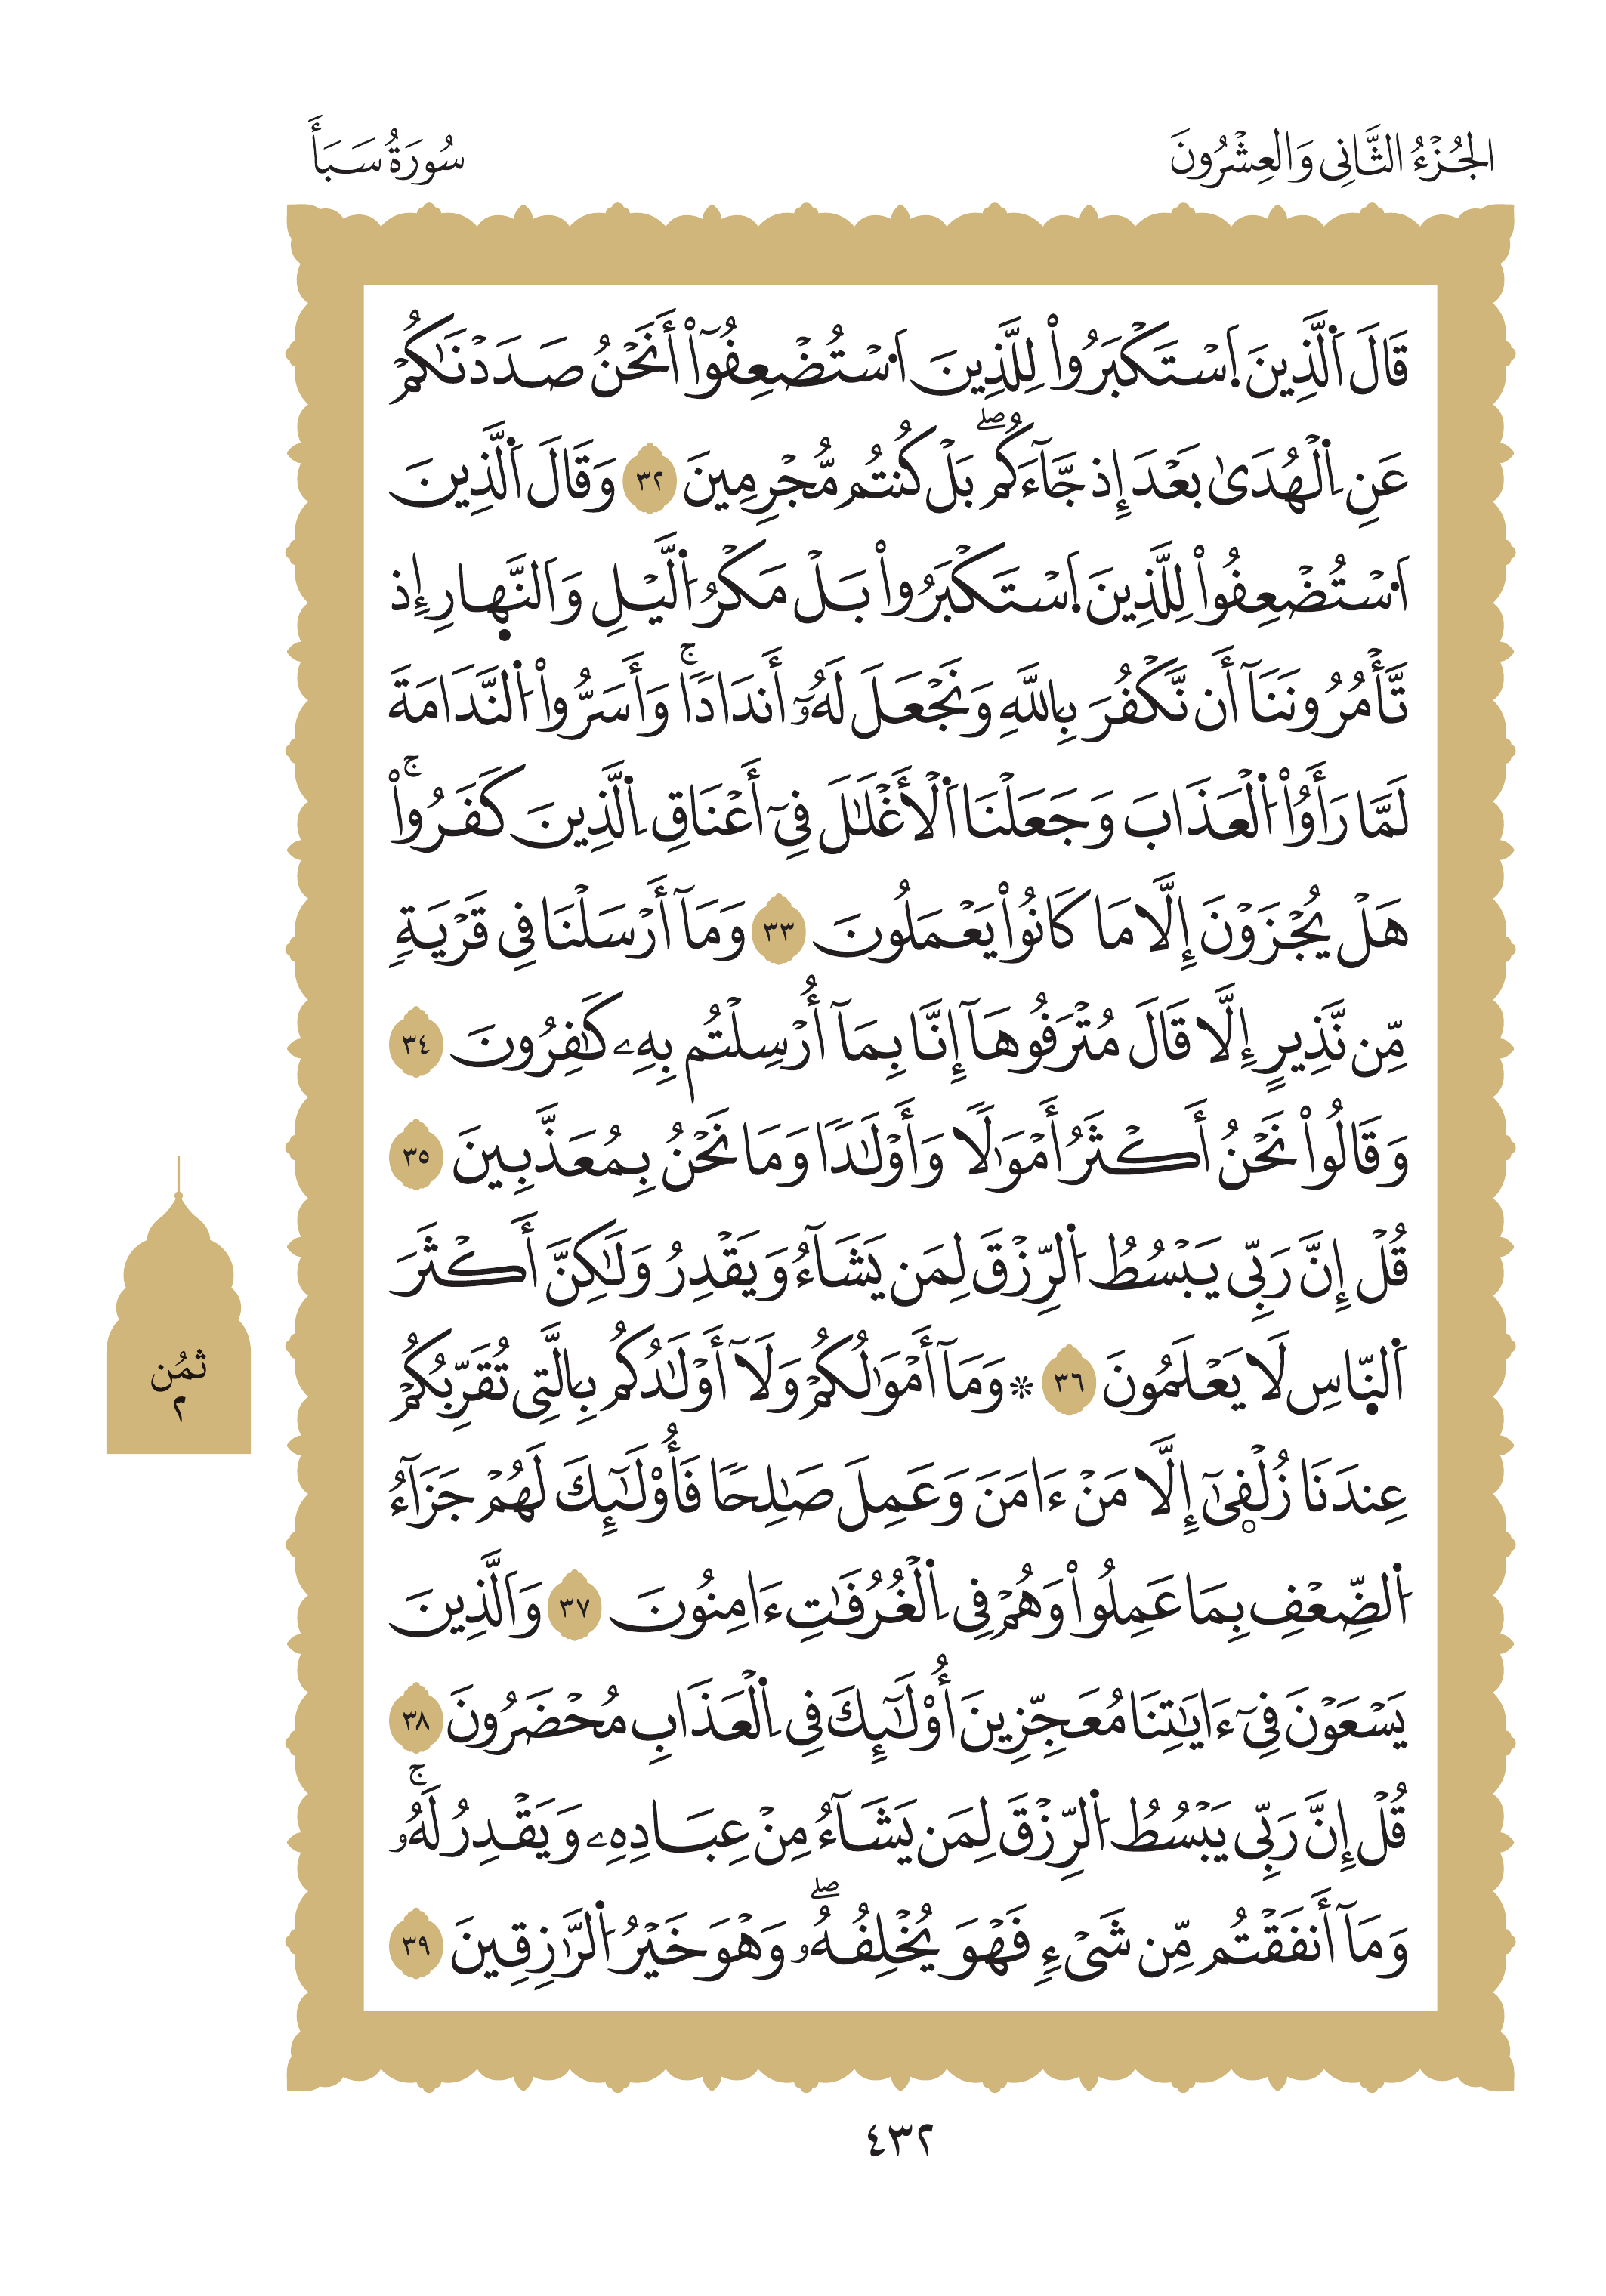 الجُزْءُ الثَّانِي وَالعِشْرُونَ
سُورَةُ سَبَأ
قَالَ اَ۬لَّذِينَ اَ۪سْتَكْبَرُواْ لِلَّذِينَ اَ۟سْتُضْعِفُوٓاْ أَنَحْنُ صَدَدْنَٰكُمْ
عَنِ اِ۬لْهُدَىٰ بَعْدَ إِذ جَّآءَكُمۖ بَلْ كُنتُم مُّجْرِمِينَ ٣٢ وَقَالَ اَ۬لَّذِينَ
اَ۟سْتُضْعِفُواْ لِلَّذِينَ اَ۪سْتَكْبَرُواْ بَلْ مَكْرُ اُ۬لَّيْلِ وَالنَّه۪ارِ إِذ
تَّأْمُرُونَنَآ أَن نَّكْفُرَ بِاللَّهِ وَنَجْعَلَ لَهُۥٓ أَندَادٗاۚ وَأَسَرُّواْ اُ۬لنَّدَامَةَ
لَمَّا رَأَوُاْ اُ۬لْعَذَابَ وَجَعَلْنَا اَ۬لْأَغْلَٰلَ فِيٓ أَعْنَاقِ اِ۬لَّذِينَ كَفَرُواْۚ
هَلْ يُجْزَوْنَ إِلَّا مَا كَانُواْ يَعْمَلُونَ ٣٣ وَمَآ أَرْسَلْنَا فِي قَرْيَةٖ
مِّن نَّذِيرٍ إِلَّا قَالَ مُتْرَفُوهَآ إِنَّا بِمَآ أُرْسِلْتُم بِهِۦ كَٰفِرُونَ ٣٤
وَقَالُواْ نَحْنُ أَكْثَرُ أَمْوَٰلٗا وَأَوْلَٰدٗا وَمَا نَحْنُ بِمُعَذَّبِينَ ٣٥
قُلْ إِنَّ رَبِّي يَبْسُطُ اُ۬لرِّزْقَ لِمَن يَشَآءُ وَيَقْدِرُ وَلَٰكِنَّ أَكْثَرَ
اَ۬لنّ۪اسِ لَا يَعْلَمُونَ ٣٦ ۞ وَمَآ أَمْوَٰلُكُمْ وَلَآ أَوْلَٰدُكُم بِالَّتِي تُقَرِّبُكُمْ
عِندَنَا زُلْف۪ىٰٓ إِلَّا مَنْ ءَامَنَ وَعَمِلَ صَٰلِحٗا فَأُوْلَٰٓئِكَ لَهُمْ جَزَآءُ
اُ۬لضِّعْفِ بِمَا عَمِلُواْ وَهُمْ فِي اِ۬لْغُرُفَٰتِ ءَامِنُونَ ٣٧ وَالَّذِينَ
يَسْعَوْنَ فِيٓ ءَايَٰتِنَا مُعَجِّزِينَ أُوْلَٰٓئِكَ فِي اِ۬لْعَذَابِ مُحْضَرُونَ ٣٨
قُلْ إِنَّ رَبِّي يَبْسُطُ اُ۬لرِّزْقَ لِمَن يَشَآءُ مِنْ عِبَادِهِۦ وَيَقْدِرُ لَهُۥۚ
وَمَآ أَنفَقْتُم مِّن شَيْءٖ فَهْوَ يُخْلِفُهُۥۖ وَهْوَ خَيْرُ اُ۬لرَّٰزِقِينَ ٣٩
ثمُن
٢
٤٣٢